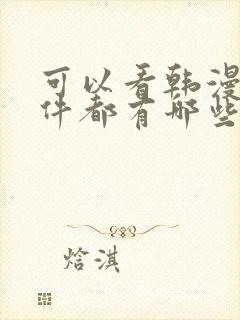 可以看韩漫
件都有哪些
焓淇